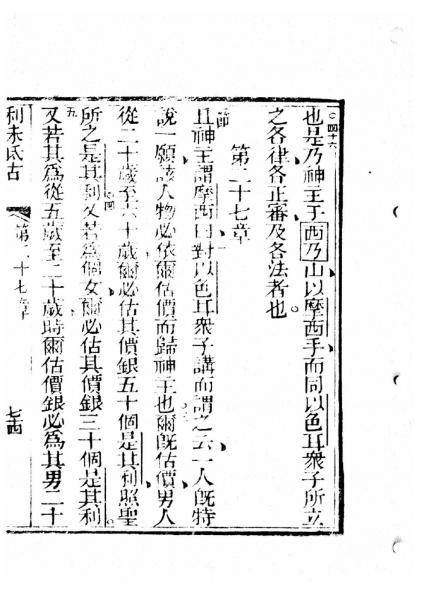 四十六
也是乃神主于西乃山以摩西手而同以色耳衆子所立
之各律各正審及各法者也
第二十七章
節
且神主謂摩西曰對以色耳衆子講而謂之云一人既特
說一願該人物必依爾估價而歸神主也爾既估價男人
從二十歲至六十歲爾必估其價銀五十個是其利照聖
四
所之是其利又若爲個女爾必估其價銀三十個是其利
五
又若其爲從五歲至二十歲時爾估價銀必爲其男二十
利未氏古
第二十七章
七十四